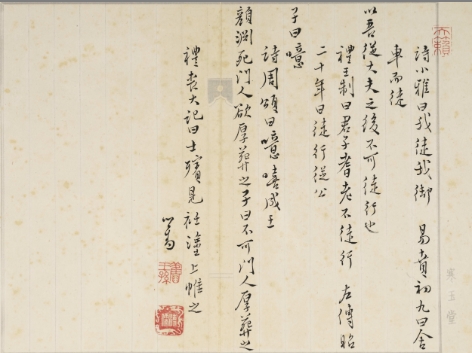 詩小雅曰我徒我御 易賁初九曰舍
車而徒
以吾從大夫之後不可徒行也
禮王制曰君子耆老不徒行 左傳昭
二十年曰徒行從公
子曰噫
詩周頌曰噫嘻成王
顏淵死門人欲厚葬之子曰不可門人厚葬之
禮喪大記曰士殯見衽塗上帷之